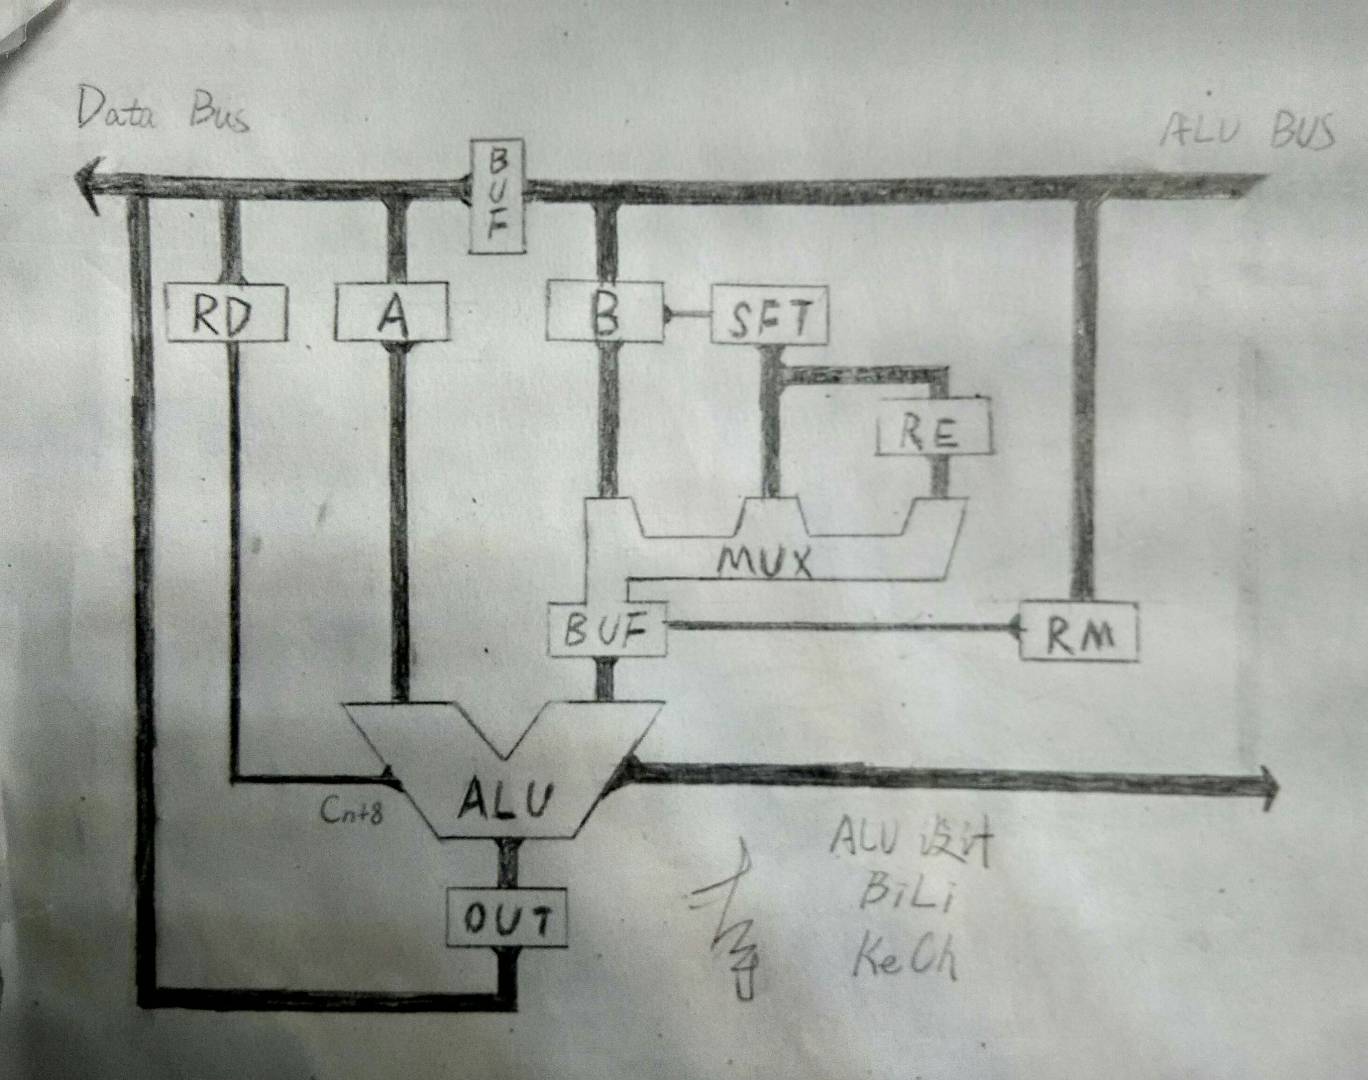 Data Bus
ALU BUS
BUF
RD
A
B
SFT
RE
MUX
BUF
RM
ALU
Cn+8
OUT
ALU 设计
BiLi
KeCh